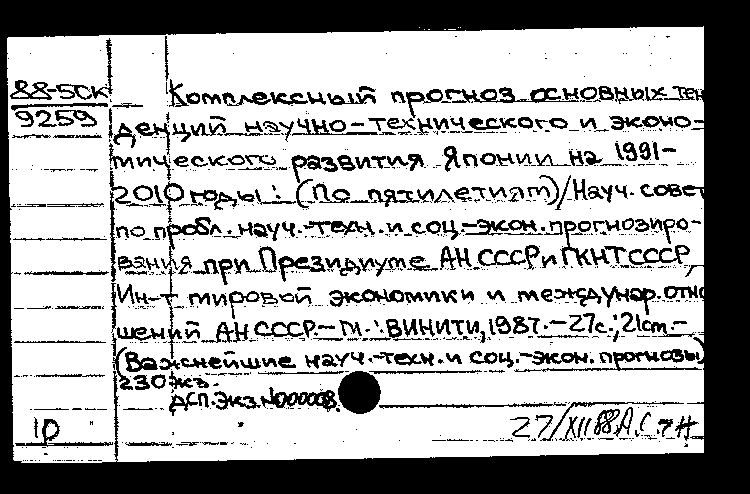 88-5СК
9259
Комплексный прогноз основных тен
денций научно-технического и эконо-
мического развития Японии на 1991-
2010 годы: (По пятилетиям)/Науч. совет
по пробл. науч.-техн. и соц.-экон. прогнозиро-
вания при Президиуме АН СССР и ГКНТ СССР,
Ин-т мировой экономики и междунар. отно
шений АН СССР.-М.: ВИНИТИ, 1987.-27с.; 21см.-
(Важнейшие науч.-техн. и соц.-экон. прогнозы)
230 экз.
ДСП. Экз. N000008.
10
27/XII 88